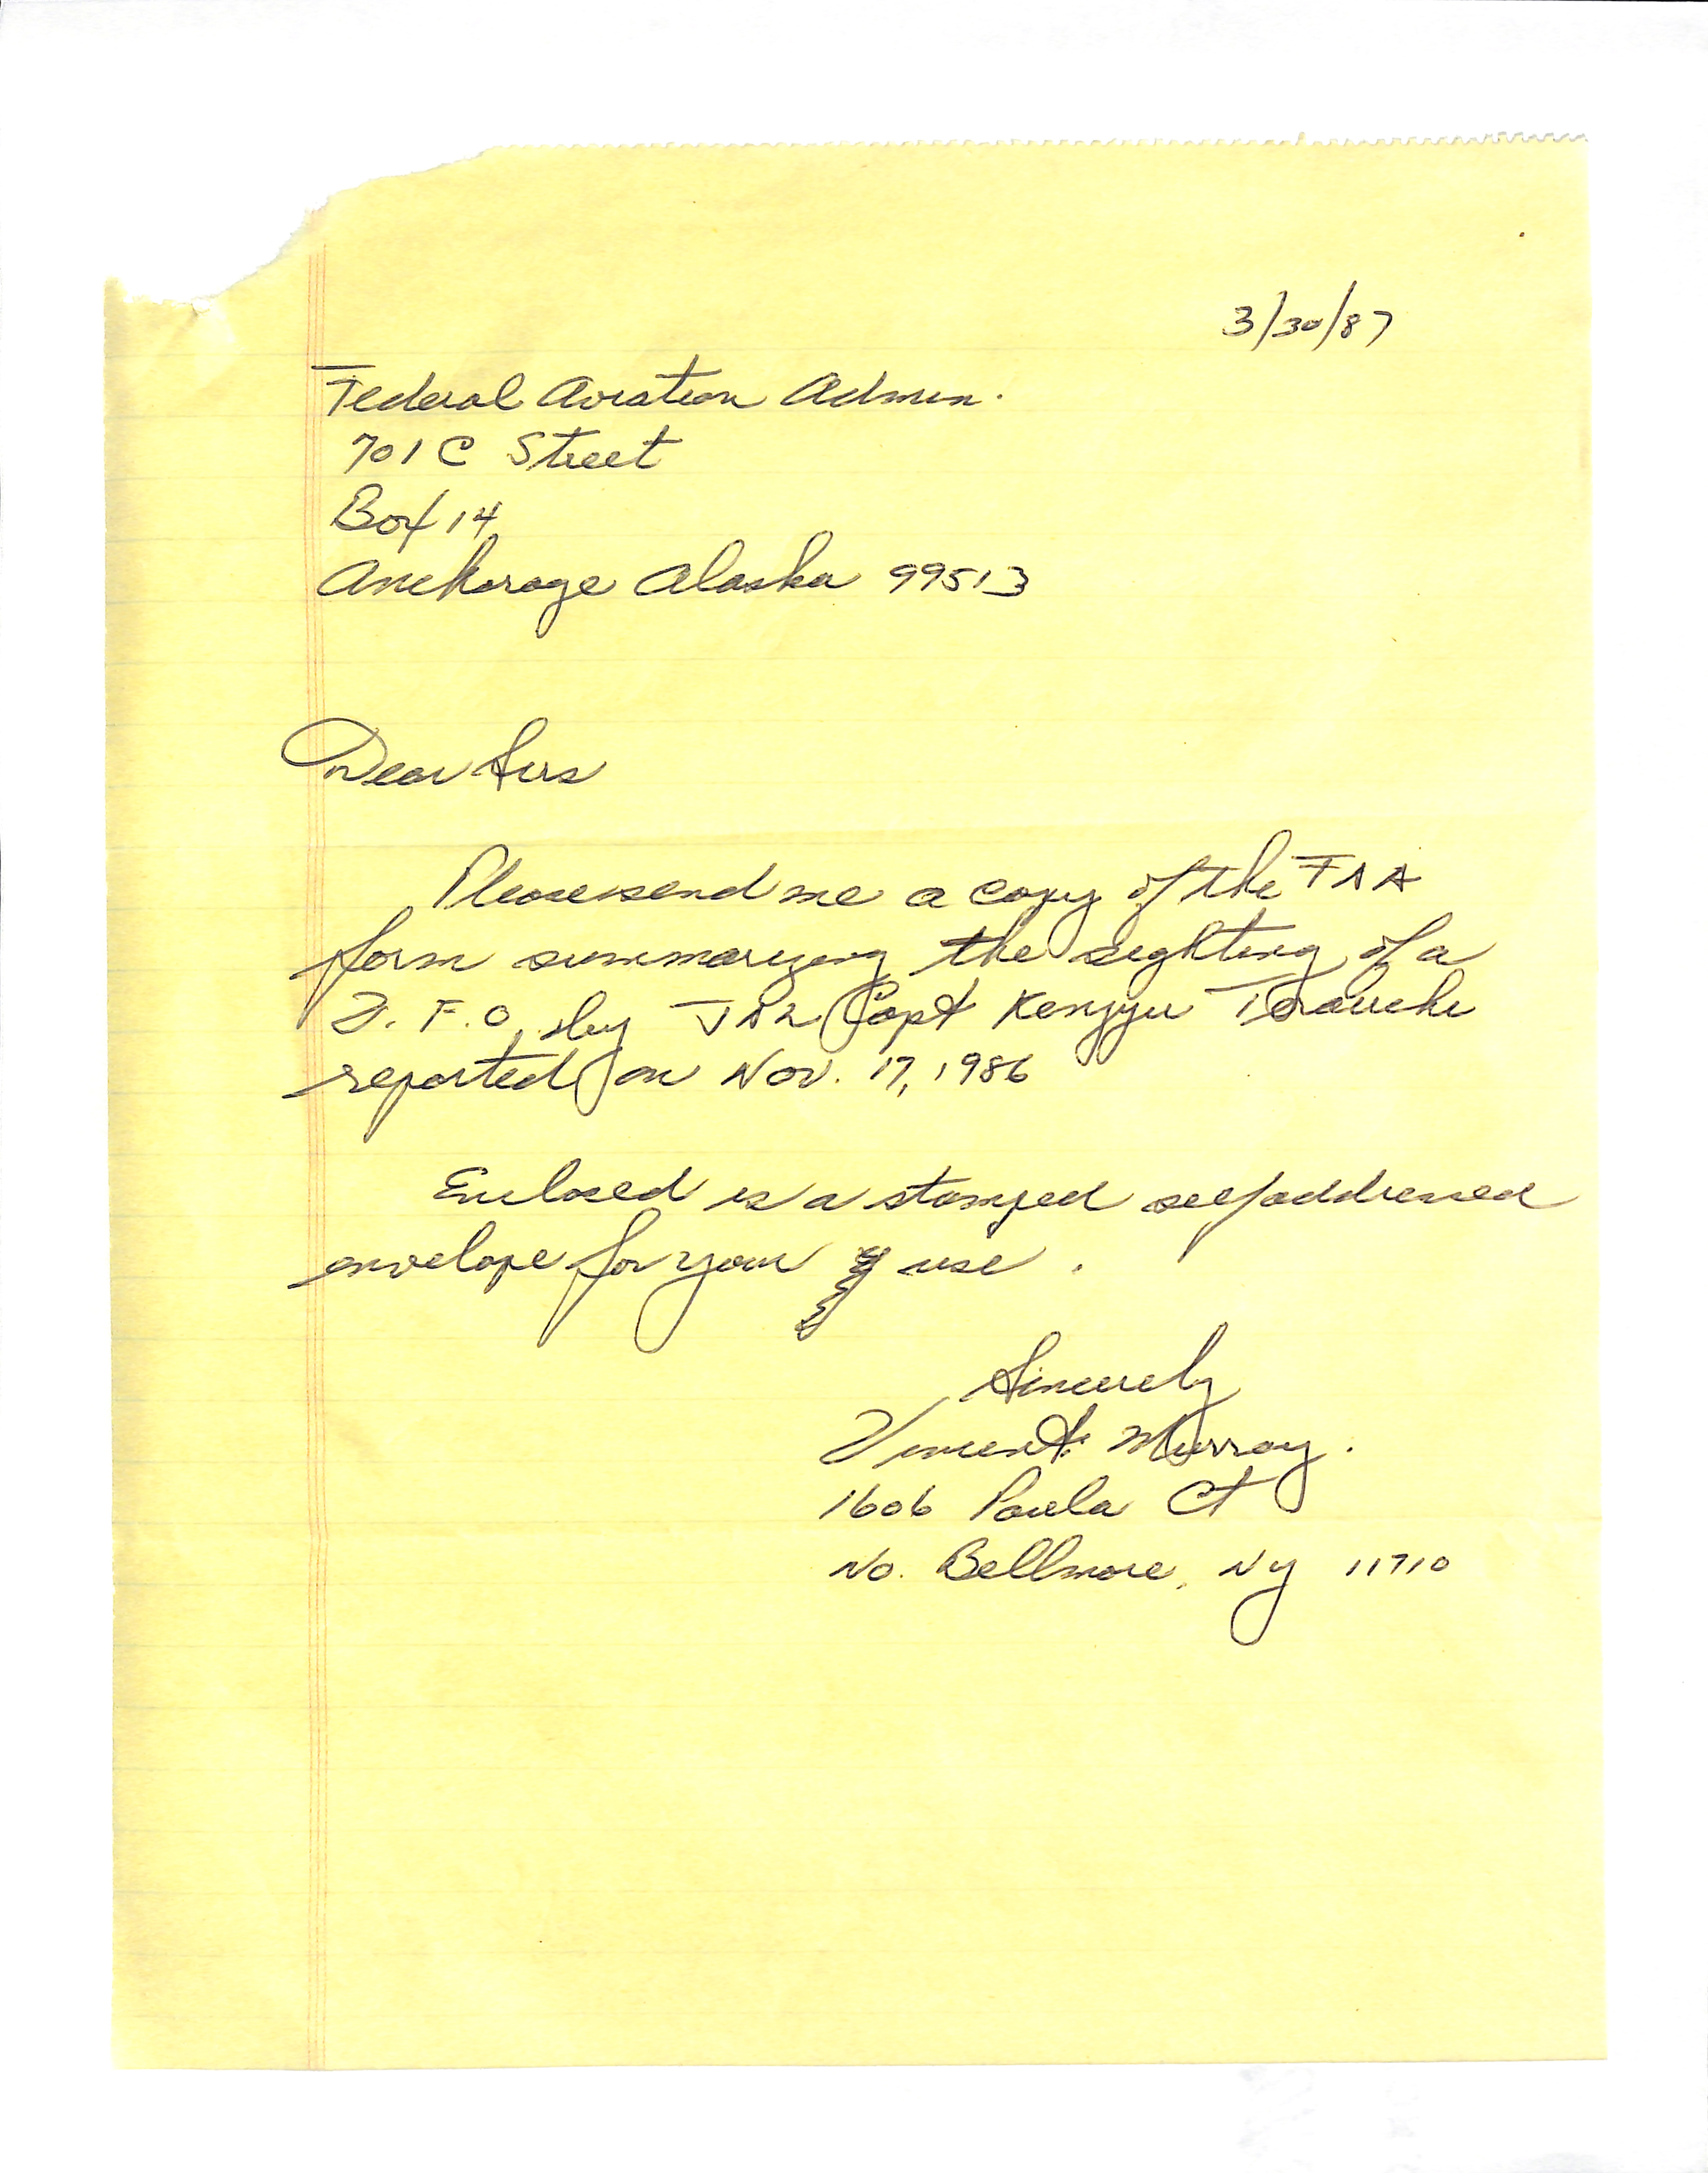 3/30/87
Federal Aviation Admin.
701 C Street
Box 14
Anchorage Alaska 99513
Dear Sirs
Please send me a copy of the FAA
form summarizing the sighting of a
U. F. O. by JAL Capt Kenjyu Terauchi
reported on Nov. 17, 1986
Enclosed is a stamped self addressed
envelope for your use.
Sincerely
Vincent Murray.
1606 Paula Ct
No. Bellmore, Ny 11710